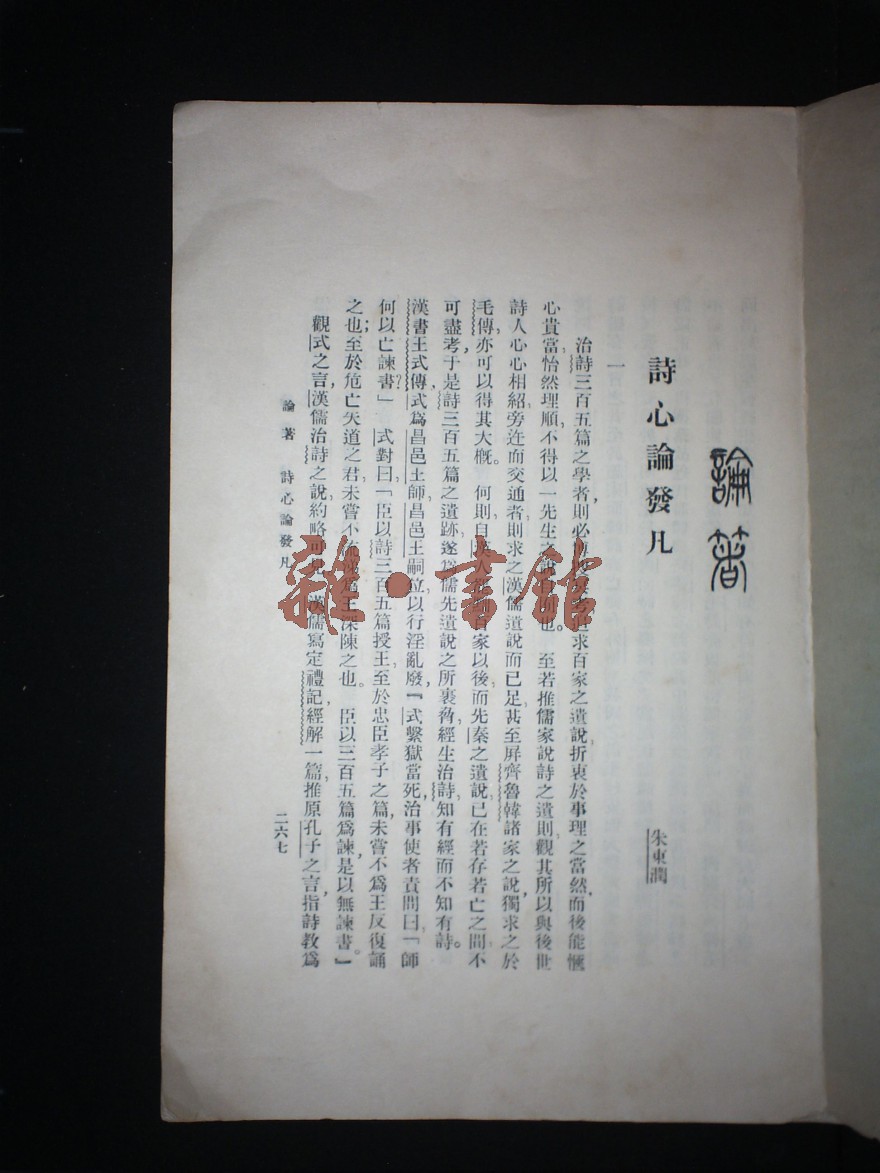 論著
詩心論發凡
朱東潤
一
治詩三百五篇之學者，則必求百家之遺說，折衷於事理之當然，而後能愜
心貴當，怡然理順，不得以一先生之說也。至若推儒家說詩之遺，則觀其所以與後世
詩人心心相紹，旁迕而交通者，則求之漢儒遺說而已足，甚至屏齊魯韓諸家之說，獨求之於
毛傳，亦可以得其大概。何則，自漢人百家以後，而先秦之遺說，已在若存若亡之間，不
可盡考，于是詩三百五篇之遺跡，遂爲儒先遺說之所裹脅，經生治詩，知有經而不知有詩。
漢書王式傳，式爲昌邑王師，昌邑王嗣立，以行淫亂廢，『式繫獄當死，治事使者責問曰，「師
何以亡諫書？」式對曰，「臣以詩三百五篇授王，至於忠臣孝子之篇，未嘗不爲王反復誦
之也；至於危亡失道之君，未嘗不流涕爲王深陳之也。臣以三百五篇爲諫，是以無諫書。』
觀式之言，漢儒治詩之說，約略可見。漢儒寫定禮記經解一篇，推原孔子之言，指詩教爲
論著　詩心論發凡
二六七
雜·書館